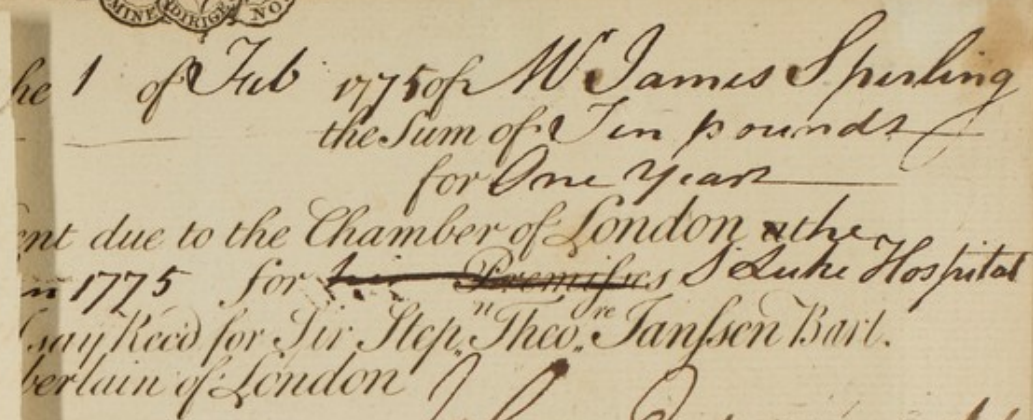 MINE DIRIGE NOS
he 1 of Feb 1775 of Mr James Sperling
the Sum of Ten pounds
for One Year
ent due to the Chamber of London at the
in 1775 for his Premisses St Luke Hospital
say Recd for Sir Stepn. Theore. Janssen Bart.
berlain of London